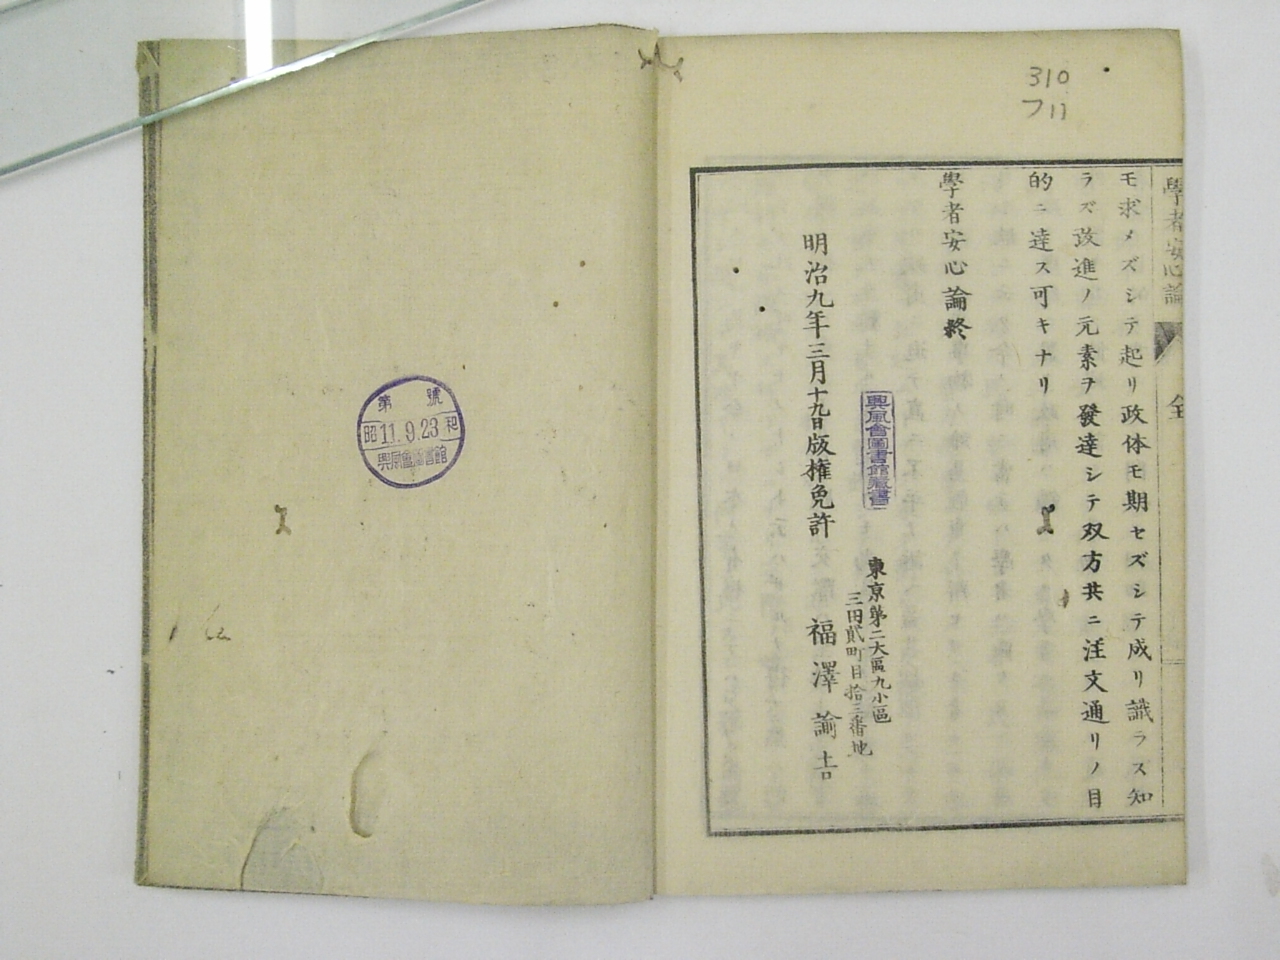 310
フ11
學者安心論
全
モ求メズシテ起リ政体モ期セズシテ成リ識ラス知
ラズ改進ノ元素ヲ發達シテ双方共ニ注文通リノ目
的ニ達ス可キナリ
學者安心論終
明治九年三月十九日版權免許
東京第二大區九小區
三田貳町目拾三番地
福澤諭吉
興風會圖書館藏書
第 號
昭和 11.9.23
興風會圖書館